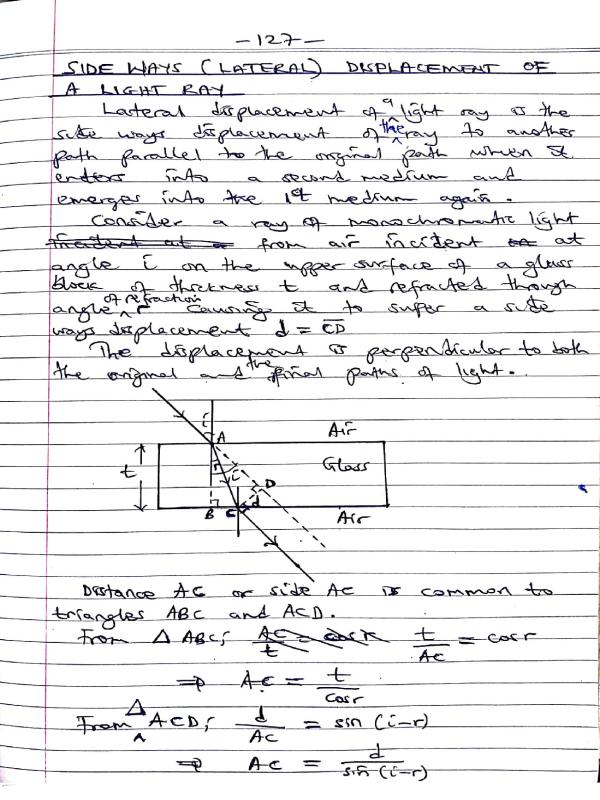 -127-
SIDE WAYS (LATERAL) DISPLACEMENT OF
A LIGHT RAY
Lateral displacement of a light ray is the
side ways displacement of the ray to another
path parallel to the original path when it
enters into a second medium and
emerges into the 1st medium again.
Consider a ray of monochromatic light
from air incident at
angle i on the upper surface of a glass
block of thickness t and refracted through
angle of refraction r causing it to suffer a side
ways displacement d = CD
The displacement is perpendicular to both
the original and the final paths of light.
i
A
Air
t
r
i
Glass
D
d
B
C
Air
Distance AC or side AC is common to
triangles ABC and ACD.
From Δ ABC; t/AC = cos r
⇒ AC = t/cos r
From Δ ACD; d/AC = sin (i-r)
⇒ AC = d/sin (i-r)